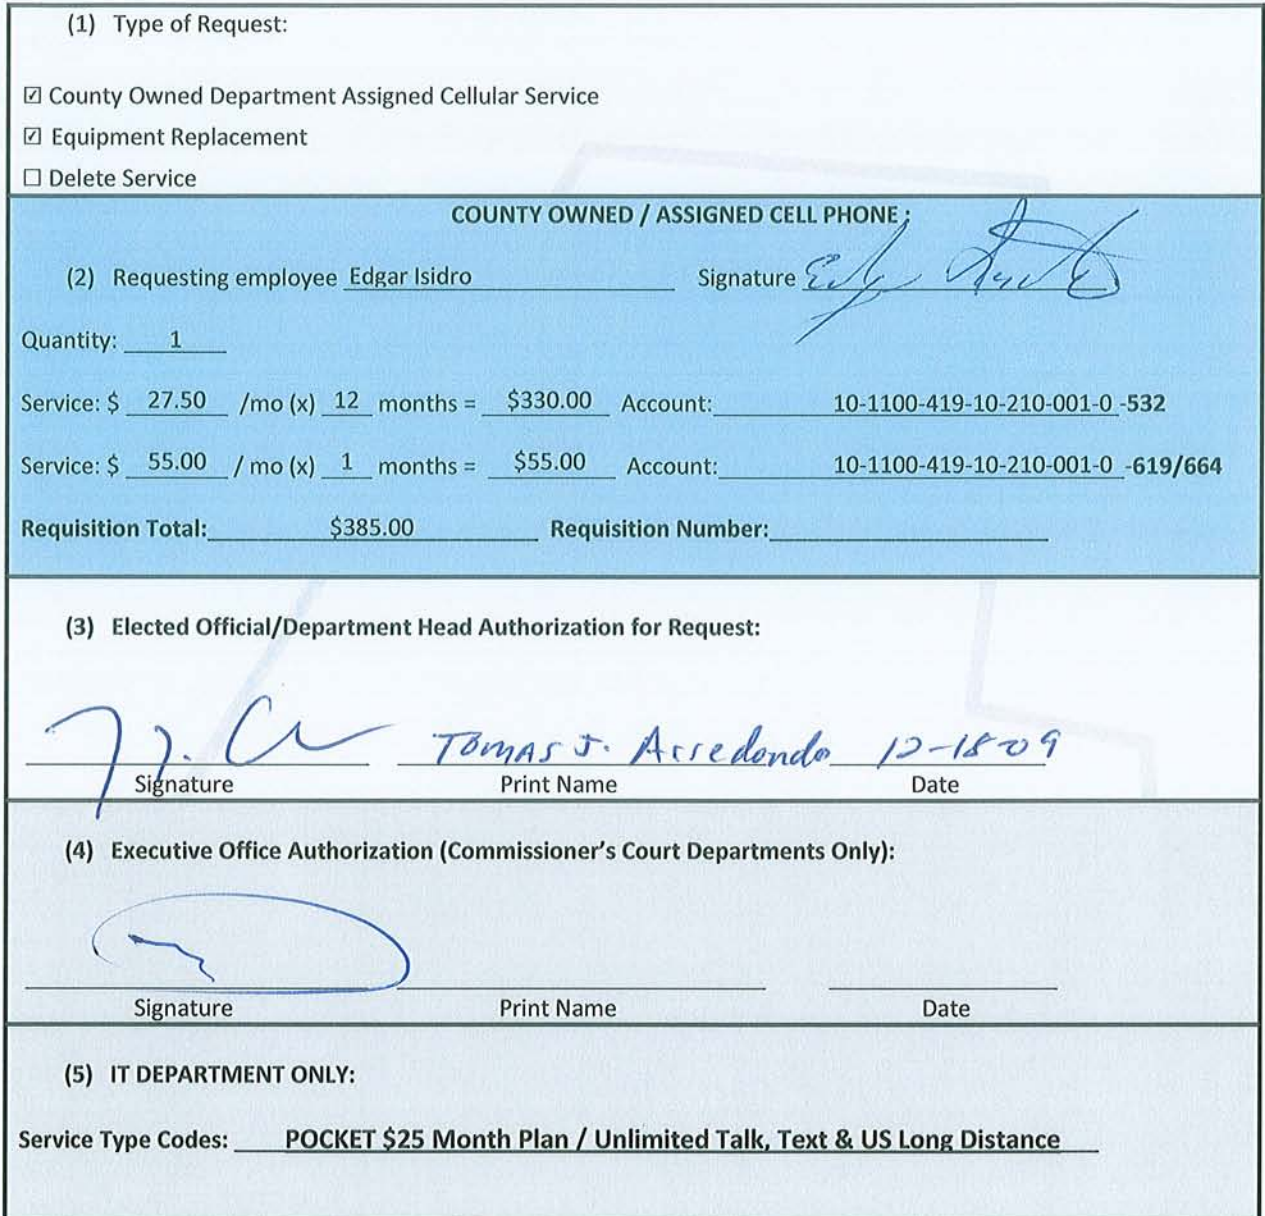 (1) Type of Request:
☑ County Owned Department Assigned Cellular Service
☑ Equipment Replacement
☐ Delete Service
COUNTY OWNED / ASSIGNED CELL PHONE :
(2) Requesting employee Edgar Isidro Signature
Quantity: 1
Service: $ 27.50 /mo (x) 12 months = $330.00 Account: 10-1100-419-10-210-001-0 -532
Service: $ 55.00 / mo (x) 1 months = $55.00 Account: 10-1100-419-10-210-001-0 -619/664
Requisition Total: $385.00 Requisition Number:
(3) Elected Official/Department Head Authorization for Request:
Tomas J. Arredondo 12-18-09
Signature Print Name Date
(4) Executive Office Authorization (Commissioner's Court Departments Only):
Signature Print Name Date
(5) IT DEPARTMENT ONLY:
Service Type Codes: POCKET $25 Month Plan / Unlimited Talk, Text & US Long Distance